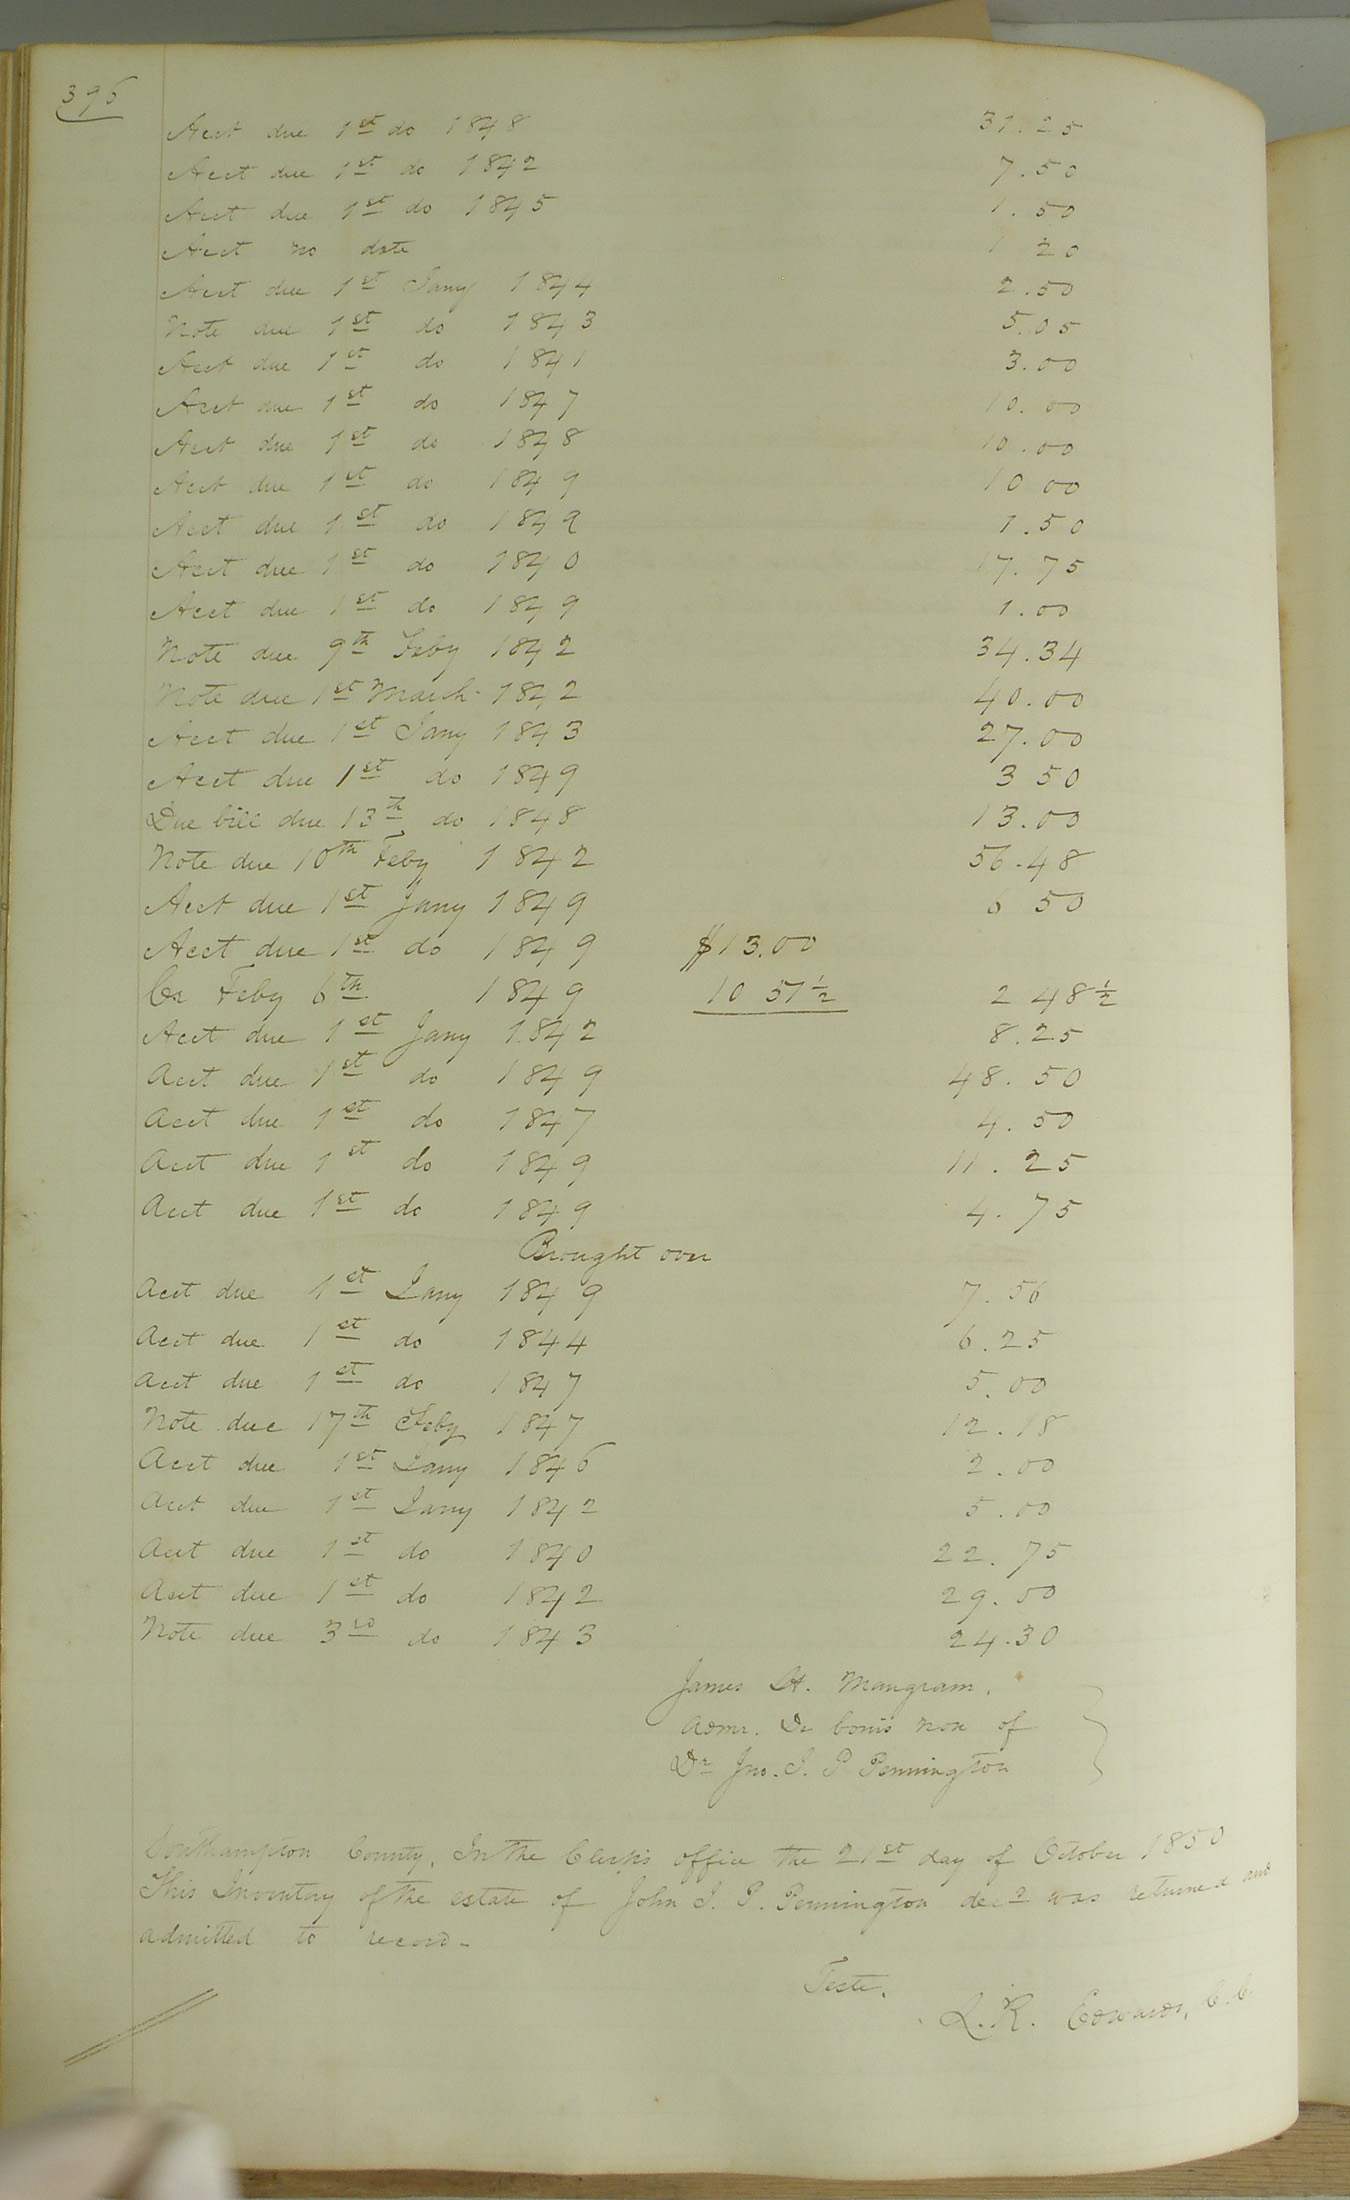 396
Acct due 1st do 1848 31.25
Acct due 1st do 1842 7.50
Acct due 1st do 1845 1.50
Acct no date 1 20
Acct due 1st Jany 1844 2.50
Note due 1st do 1843 5.05
Acct due 1st do 1841 3.00
Acct due 1st do 1847 10.00
Acct due 1st do 1848 10.00
Acct due 1st do 1849 10 00
Acct due 1st do 1849 1.50
Acct due 1st do 1840 17.75
Acct due 1st do 1849 1.00
Note due 9th Feby 1842 34.34
Note due 1st March 1842 40.00
Acct due 1st Jany 1843 27.00
Acct due 1st do 1849 3 50
Due bill due 13th do 1848 13.00
Note due 10th Feby 1842 56.48
Acct due 1st Jany 1849 6 50
Acct due 1st do 1849 $13.00
Cr Feby 6th 1849 10 51½ 2 48½
Acct due 1st Jany 1842 8.25
Acct due 1st do 1849 48.50
Acct due 1st do 1847 4.50
Acct due 1st do 1849 11.25
Acct due 1st do 1849 4.75
Brought over
Acct due 1st Jany 1849 7.56
Acct due 1st do 1844 6.25
Acct due 1st do 1847 5.00
Note due 17th Feby 1847 12.18
Acct due 1st Jany 1846 2.00
Acct due 1st Jany 1842 5.00
Acct due 1st do 1840 22.75
Acct due 1st do 1842 29.00
Note due 3rd do 1843 24.30
James H. Mangram.
Admr. De bonis non of
Dr Jno. J. P Pennington
Southampton County, In the Clerk's office the 21st day of October 1850
This Inventory of the estate of John J. P. Pennington decd was returned and
admitted to record-
Teste,
L. R. Edwards, C.C.